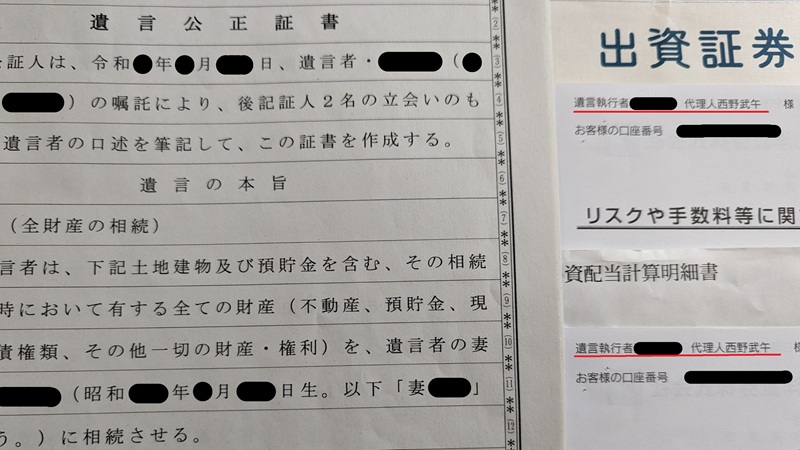 遺言公正証書
証人は、令和●年●月 日、遺言者・ (●
)の嘱託により、後記証人2名の立会いのも
遺言者の口述を筆記して、この証書を作成する。
遺言の本旨
(全財産の相続)
言者は、下記土地建物及び預貯金を含む、その相続
時において有する全ての財産(不動産、預貯金、現
債権類、その他一切の財産・権利)を、遺言者の妻
(昭和 年●月 日生。以下「妻 」
う。)に相続させる。
(2)
(3)
(4)
(5)
(6)
(7)
(8)
(9)
(10)
(11)
(12)
出資証券
遺言執行者 代理人西野武午 様
お客様の口座番号
リスクや手数料等に関
資配当計算明細書
遺言執行者 代理人西野武午 様
お客様の口座番号